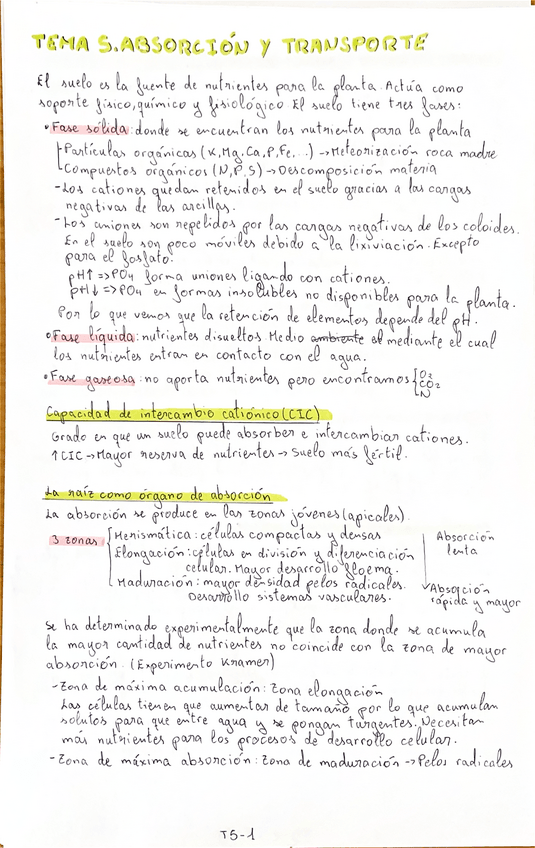 TEMA 5. ABSORCIÓN Y TRANSPORTE
El suelo es la fuente de nutrientes para la planta. Actúa como
soporte físico, químico y fisiológico El suelo tiene tres fases:
• Fase sólida: donde se encuentran los nutrientes para la planta
Partículas orgánicas (K, Mg, Ca, P, Fe, ...) → Meteorización roca madre
Compuestos orgánicos (N, P, S) → Descomposición materia
- Los cationes quedan retenidos en el suelo gracias a las cargas
negativas de las arcillas.
- Los aniones son repelidos por las cargas negativas de los coloides.
En el suelo son poco móviles debido a la lixiviación. Excepto
para el fosfato.
pH↑ => PO4 forma uniones ligando con cationes.
pH↓ => PO4 en formas insolubles no disponibles para la planta.
Por lo que vemos que la retención de elementos depende del pH.
• Fase líquida: nutrientes disueltos Medio ambiente el mediante el cual
los nutrientes entran en contacto con el agua.
• Fase gaseosa: no aporta nutrientes pero encontramos { O2
CO2
N
Capacidad de intercambio catiónico (CIC)
Grado en que un suelo puede absorber e intercambiar cationes.
↑CIC → Mayor reserva de nutrientes → Suelo más fértil.
La raíz como órgano de absorción
La absorción se produce en las zonas jóvenes (apicales).
3 zonas { Merismática: células compactas y densas
Elongación: células en división y diferenciación
celular. Mayor desarrollo floema.
Maduración: mayor densidad pelos radicales.
Desarrollo sistemas vasculares.
Absorción
lenta
Absorción
rápida y mayor
Se ha determinado experimentalmente que la zona donde se acumula
la mayor cantidad de nutrientes no coincide con la zona de mayor
absorción. (Experimento Kramer)
- Zona de máxima acumulación: Zona elongación
Las células tienen que aumentar de tamaño por lo que acumulan
solutos para que entre agua y se pongan turgentes. Necesitan
más nutrientes para los procesos de desarrollo celular.
- Zona de máxima absorción: Zona de maduración → Pelos radicales
T5-1